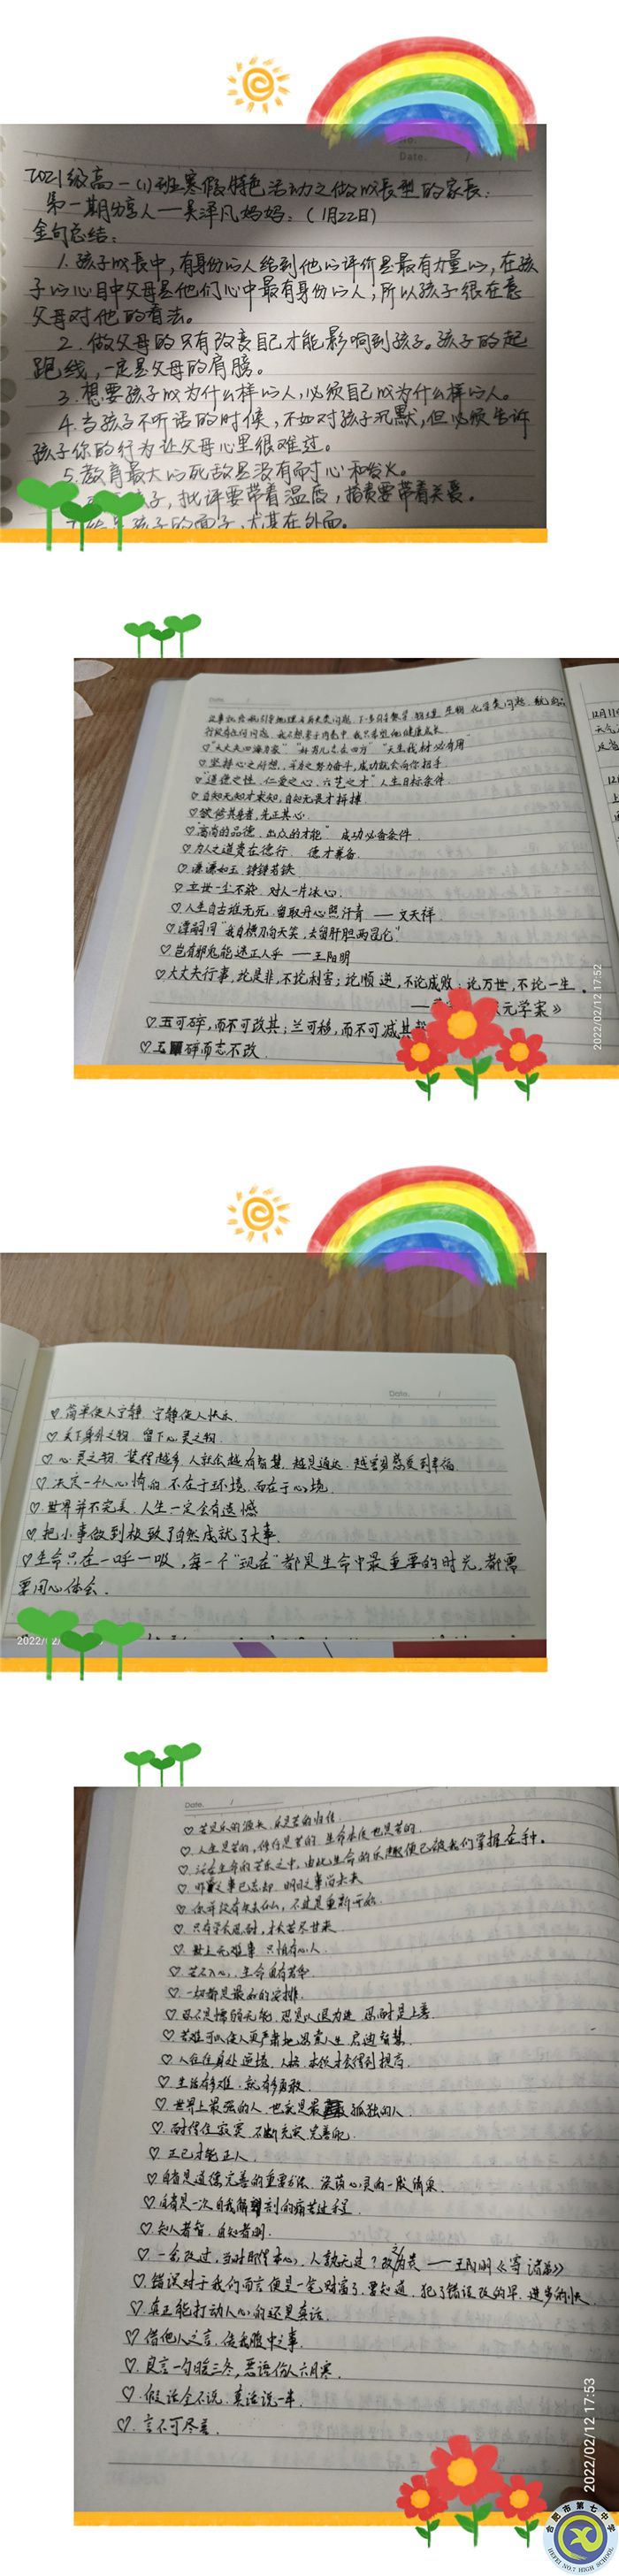 Date.
2021级高一(1)班寒假特色活动之做成长型的家长:
第一期分享人——吴泽凡妈妈:(1月22日)
金句总结:
1. 孩子成长中,有身份的人给到他的评价是最有力量的,在孩
子的心目中父母是他们心中最有身份的人,所以孩子很在意
父母对他的看法。
2. 做父母的只有改变自己才能影响到孩子。孩子的起
跑线,一定是父母的肩膀。
3. 想要孩子成为什么样的人,必须自己成为什么样的人。
4. 当孩子不听话的时候,不如对孩子沉默,但必须告诉
孩子你的行为让父母心里很难过。
5. 教育最大的死敌是没有耐心和发火。
孩子,批评要带着温度,指责要带着关爱。
孩子的面子,尤其在外面。
Date
♡"大丈夫四海为家" "好男儿志在四方" "天生我材必有用"
♡坚持心之所想,平方之努力奋斗,成功就会向你招手
♡"道德之性、仁爱之心、六艺之才"人生目标条件
♡自知无知才求知,自知无畏才拼搏
♡欲修其身者,先正其心
♡"高尚的品德、出众的才能" 成功必备条件
♡为人之道贵在德行 德才兼备
♡谦谦如玉 铮铮若铁
♡立世一尘不染 对人一片冰心
♡人生自古谁无死 留取丹心照汗青 ——文天祥
♡谭嗣同"我自横刀向天笑,去留肝胆两昆仑"
♡岂有邪鬼能迷正人乎 ——王阳明
♡大丈夫行事,论是非,不论利害;论顺逆,不论成败;论万世,不论一生.
元学案》
♡玉可碎,而不可改其;兰可移,而不可减其
♡玉碎而志不改
12月11
2022/02/12 17:52
Date. /
♡简单使人宁静 宁静使人快乐
♡关下身外之物 留下心灵之物
♡心灵之物 装得越多 人就会越有智慧 越是通达 越容易感受到幸福
♡决定一个人心情的 不在于环境 而在于心境
♡世界并不完美 人生一定会有遗憾
♡把小事做到极致了自然成就了大事
♡生命只在一呼一吸,每一个"现在"都是生命中最重要的时光,都需
要用心体会.
2022/
Date. /
♡苦是乐的源头 乐是苦的归结
♡.人生是苦的,修行是苦的 生命本质也是苦的.
♡.活在生命的苦乐之中,由此生命的乐趣便已被我们掌握在手.
♡昨日之事已忘却 明日之事尚未来
♡.你并没有失去什么,不过是重新开始
♡.只有学会忍耐,才会苦尽甘来
♡.世上无难事 只怕有心人
♡.苦不入心,生命自有芳华
♡.一切都是最好的安排
♡.忍不是懦弱无能,忍是以退为进 忍耐是上善.
♡苦难可以使人更严肃地思索人生 启迪智慧
♡.人往往身处逆境,人格 本领才会得到提高.
♡.生活有多难,就有多勇敢.
♡.世界上最强的人,也就是最孤独的人.
♡.耐得住寂寞 不断充实 完善自己
♡.正己才能正人
♡自省是道德完善的重要方法,浇筑心灵的一股清泉.
♡.自省是一次自我解剖的痛苦过程
♡.知人者智,自知者明.
♡.一念改过,当时即得本心,人孰无过?改之为贵 ——王阳明《寄诸弟》
♡.错误对于我们而言便是一笔财富了,要知道,犯了错误改的早,进步的快
♡.真正能打动人心的还是真话.
♡借他人之言,传我腹中之事.
♡.良言一句暖三冬,恶语伤人六月寒.
♡.假话全不说,真话说一半.
♡.言不可尽善.
2022/02/12 17:53
合肥市第七中学
HEFEI NO.7 HIGH SCHOOL